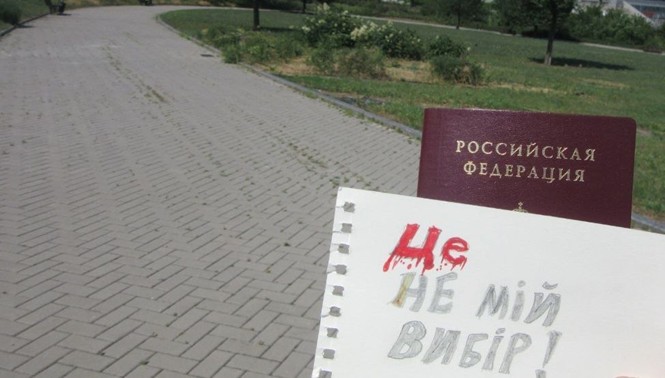 РОССИЙСКАЯ
ФЕДЕРАЦИЯ
Це
НЕ МІЙ
ВИБІР!